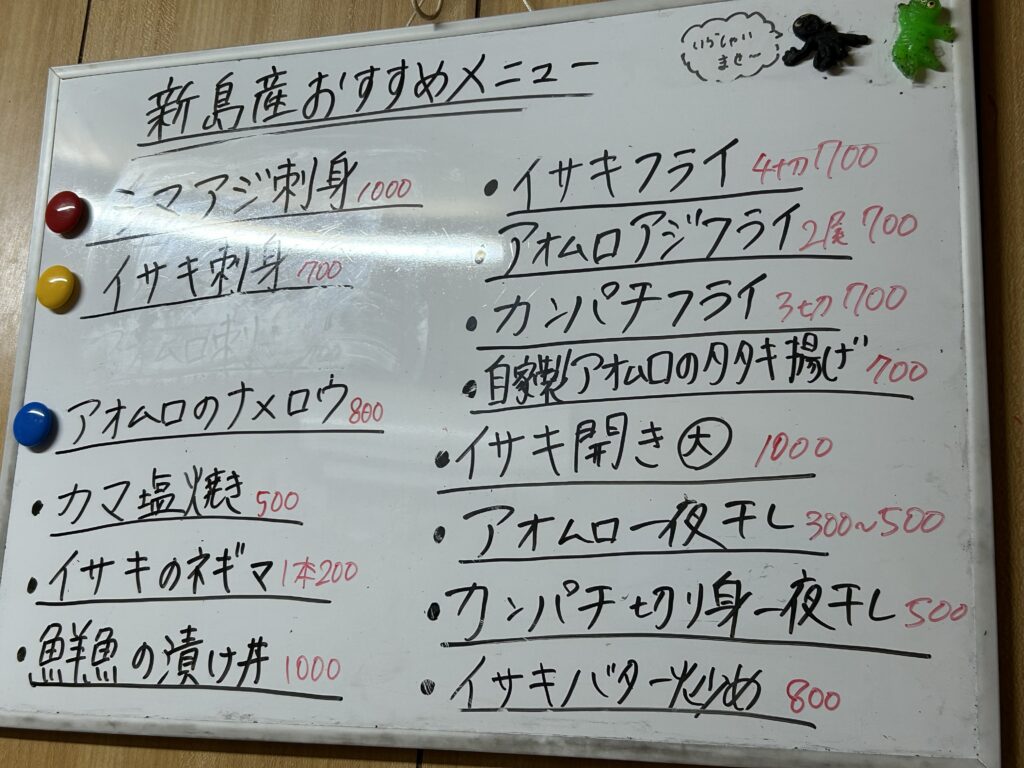 いらっしゃい
ませ〜
新島産おすすめメニュー
シマアジ刺身 1000
イサキ刺身 700
アオムロのナメロウ 800
・カマ塩焼き 500
・イサキのネギマ 1本200
・鮮魚の漬け丼 1000
・イサキフライ 4切700
・アオムロアジフライ 2尾 700
・カンパチフライ 3切700
・自家製アオムロのタタキ揚げ 700
・イサキ開き㊛ 1000
・アオムロ一夜干し 300〜500
・カンパチ切り身一夜干し 500
・イサキバター炒め 800